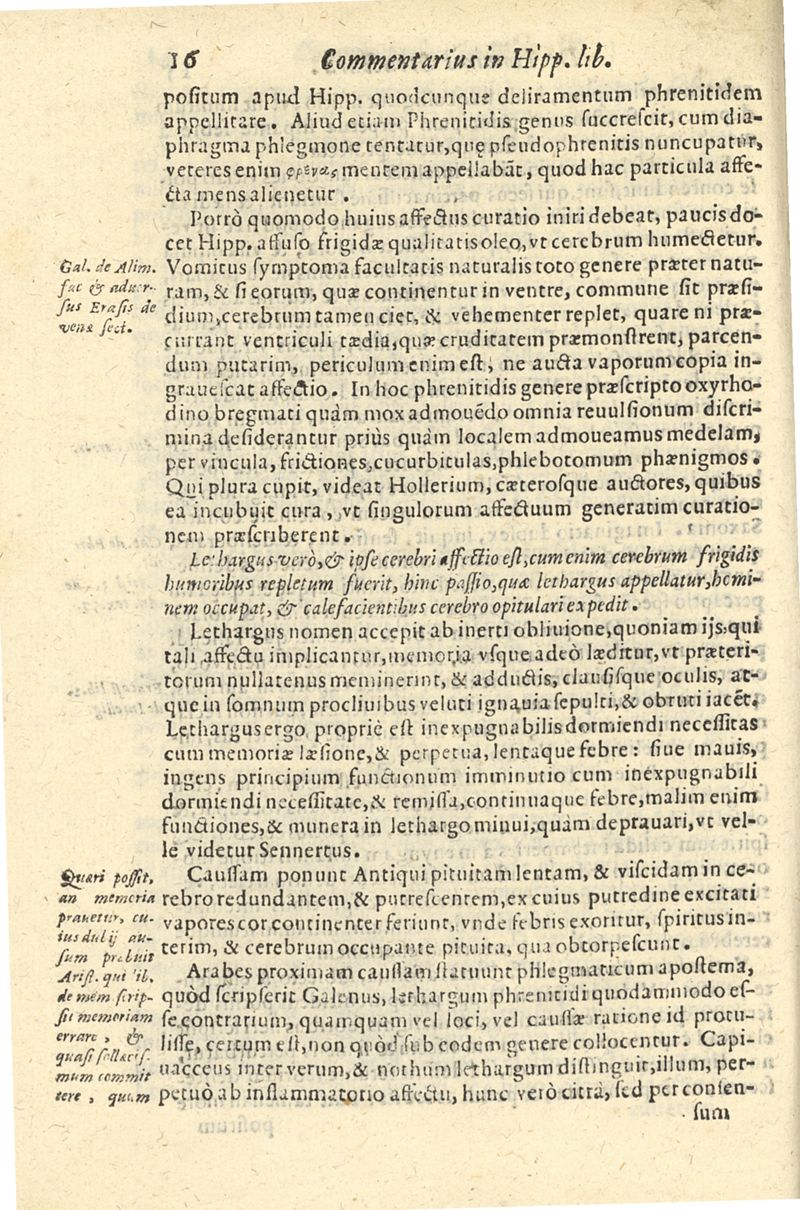 16 Commentarius in Hipp. lib.
positum apud Hipp. quodcunque deliramentum phrenitidem
appellitare. Aliud etiam Phrenitidis genus succrescit, cum dia-
phragma phlegmone tentatur, quę pseudophrenitis nuncupatur,
veteres enim φρένας mentem appellabāt, quod hac particula affe-
cta mens alienetur.
Porrò quomodo huius affectus curatio iniri debeat, paucis do-
cet Hipp. affuso frigidæ qualitatis oleo, vt cerebrum humectetur.
Vomitus symptoma facultatis naturalis toto genere præter natu-
ram, & si eorum, quæ continentur in ventre, commune sit præsi-
dium, cerebrum tamen ciet, & vehementer replet, quare ni præ-
currant ventriculi tædia, quæ cruditatem præmonstrent, parcen-
dum putarim, periculum enim est, ne aucta vaporum copia in-
grauescat affectio. In hoc phrenitidis genere præscripto oxyrho-
dino bregmati quàm mox admouēdo omnia reuulsionum discri-
mina desiderantur priùs quàm localem admoueamus medelam,
per vincula, frictiones, cucurbitulas, phlebotomum phænigmos.
Qui plura cupit, videat Hollerium, cæterosque auctores, quibus
ea incubuit cura, vt singulorum affectuum generatim curatio-
nem præscriberent.
Lethargus verò, & ipse cerebri affectio est, cum enim cerebrum frigidis
humoribus repletum fuerit, hinc passio, quæ lethargus appellatur, homi-
nem occupat, & calefacientibus cerebro opitulari expedit.
Lethargus nomen accepit ab inerti obliuione, quoniam ijs, qui
tali affectu implicantur, memoria vsque adeò læditur, vt præteri-
torum nullatenus meminerint, & adductis, clausisque oculis, at-
que in somnum procliuibus veluti ignauia sepulti, & obruti iacēt.
Lethargus ergo propriè est inexpugnabilis dormiendi necessitas
cum memoriæ læsione, & perpetua, lentaque febre: siue mauis,
ingens principium functionum imminutio cum inexpugnabili
dormiendi necessitate, & remissa, continuaque febre, malim enim
functiones, & munera in lethargo minui, quàm deprauari, vt vel-
le videtur Sennertus.
Caussam ponunt Antiqui pituitam lentam, & viscidam in ce-
rebro redundantem, & putrescentem, ex cuius putredine excitati
vapores cor continenter feriunt, vnde febris exoritur, spiritus in-
terim, & cerebrum occupante pituita, qua obtorpescunt.
Arabes proximam caussam statuunt phlegmaticum apostema,
quòd scripserit Galenus, lethargum phrenitidi quodammodo es-
se contrarium, quamquam vel loci, vel caussæ ratione id protu-
lisse, certum est, non quòd sub eodem genere collocentur. Capi-
uacceus inter verum, & nothum lethargum distinguit, illum, per-
petuò ab inflammatorio affectu, hunc verò citra, sed per consen-
sum
Gal. de Alim.
fac & aduer-
sus Erasis de
vena sect.
Quæri possit,
an memoria
prauetur, cu-
ius dubij au-
sam præbuit
Arist. qui l.
de mem scrip-
sit memoriam
errare, &
quasi
mum commit
tere, quam